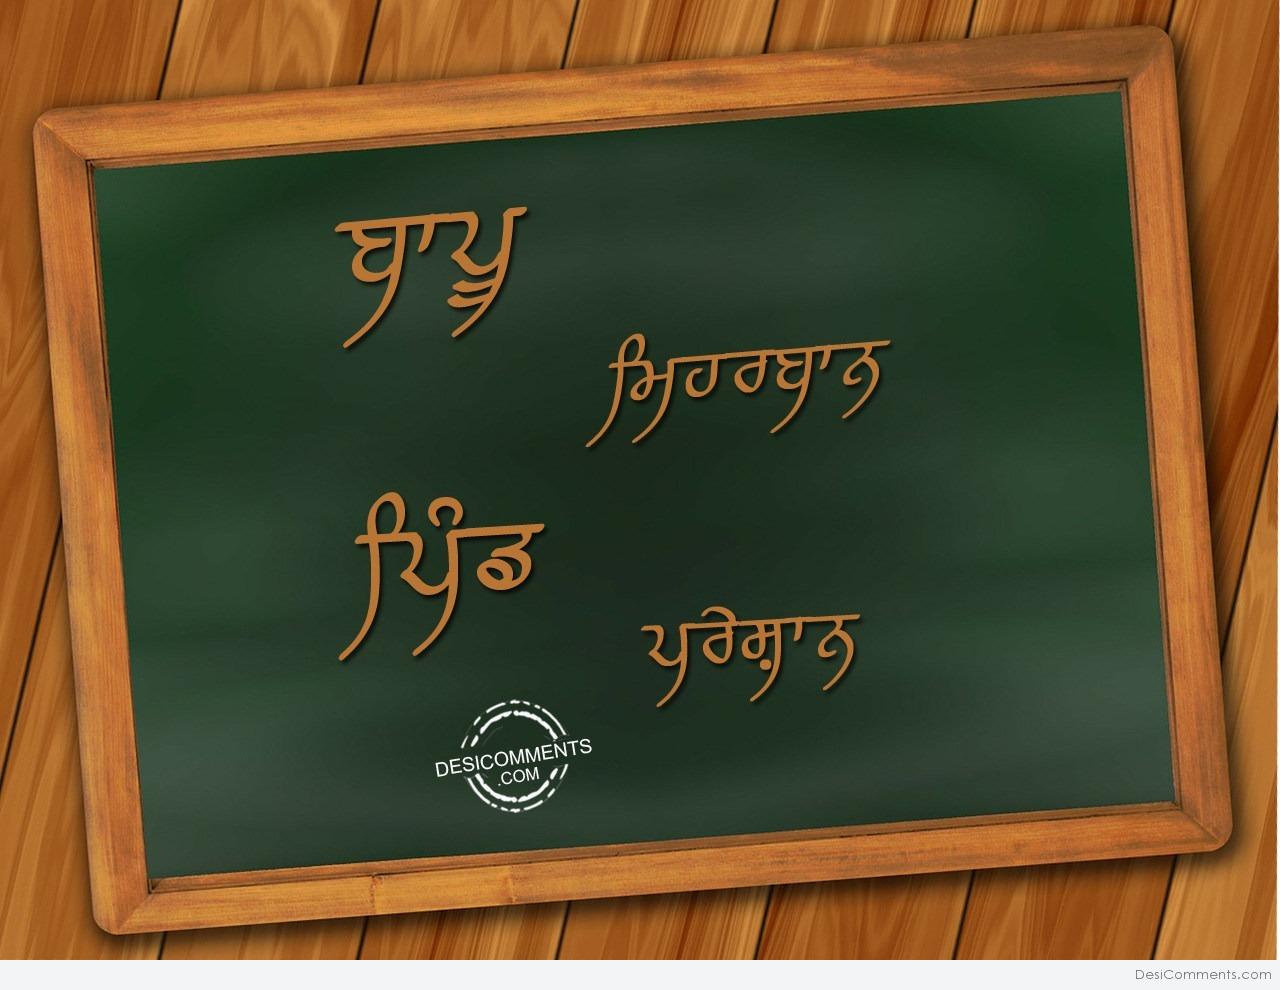 ਬਾਪੂ
ਮਿਹਰਬਾਨ
ਪਿੰਡ
ਪਰੇਸ਼ਾਨ
DESICOMMENTS
.COM
DesiComments.com